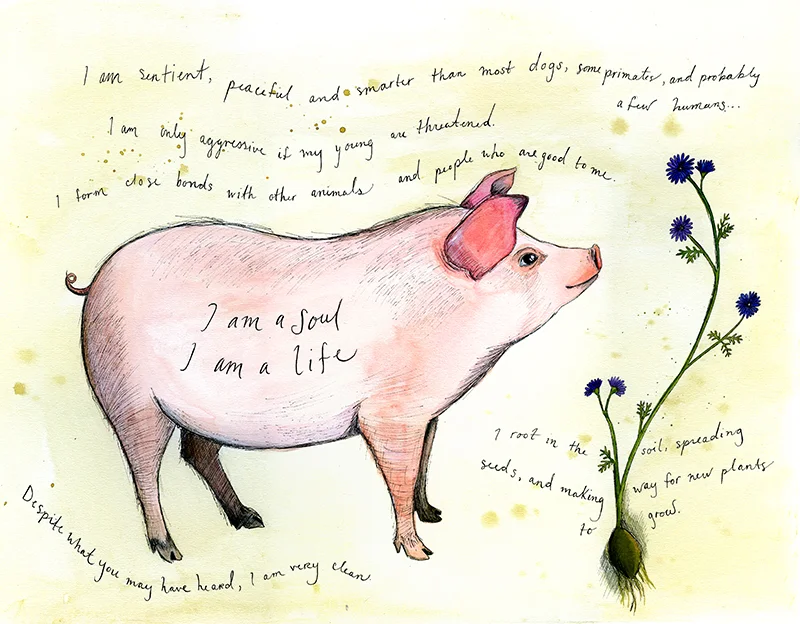 I am sentient, peaceful and smarter than most dogs, some primates, and probably
a few humans...
I am only aggressive if my young are threatened.
I form close bonds with other animals and people who are good to me.
I am a soul
I am a life
I root in the soil, spreading
seeds, and making way for new plants
to grow.
Despite what you may have heard, I am very clean